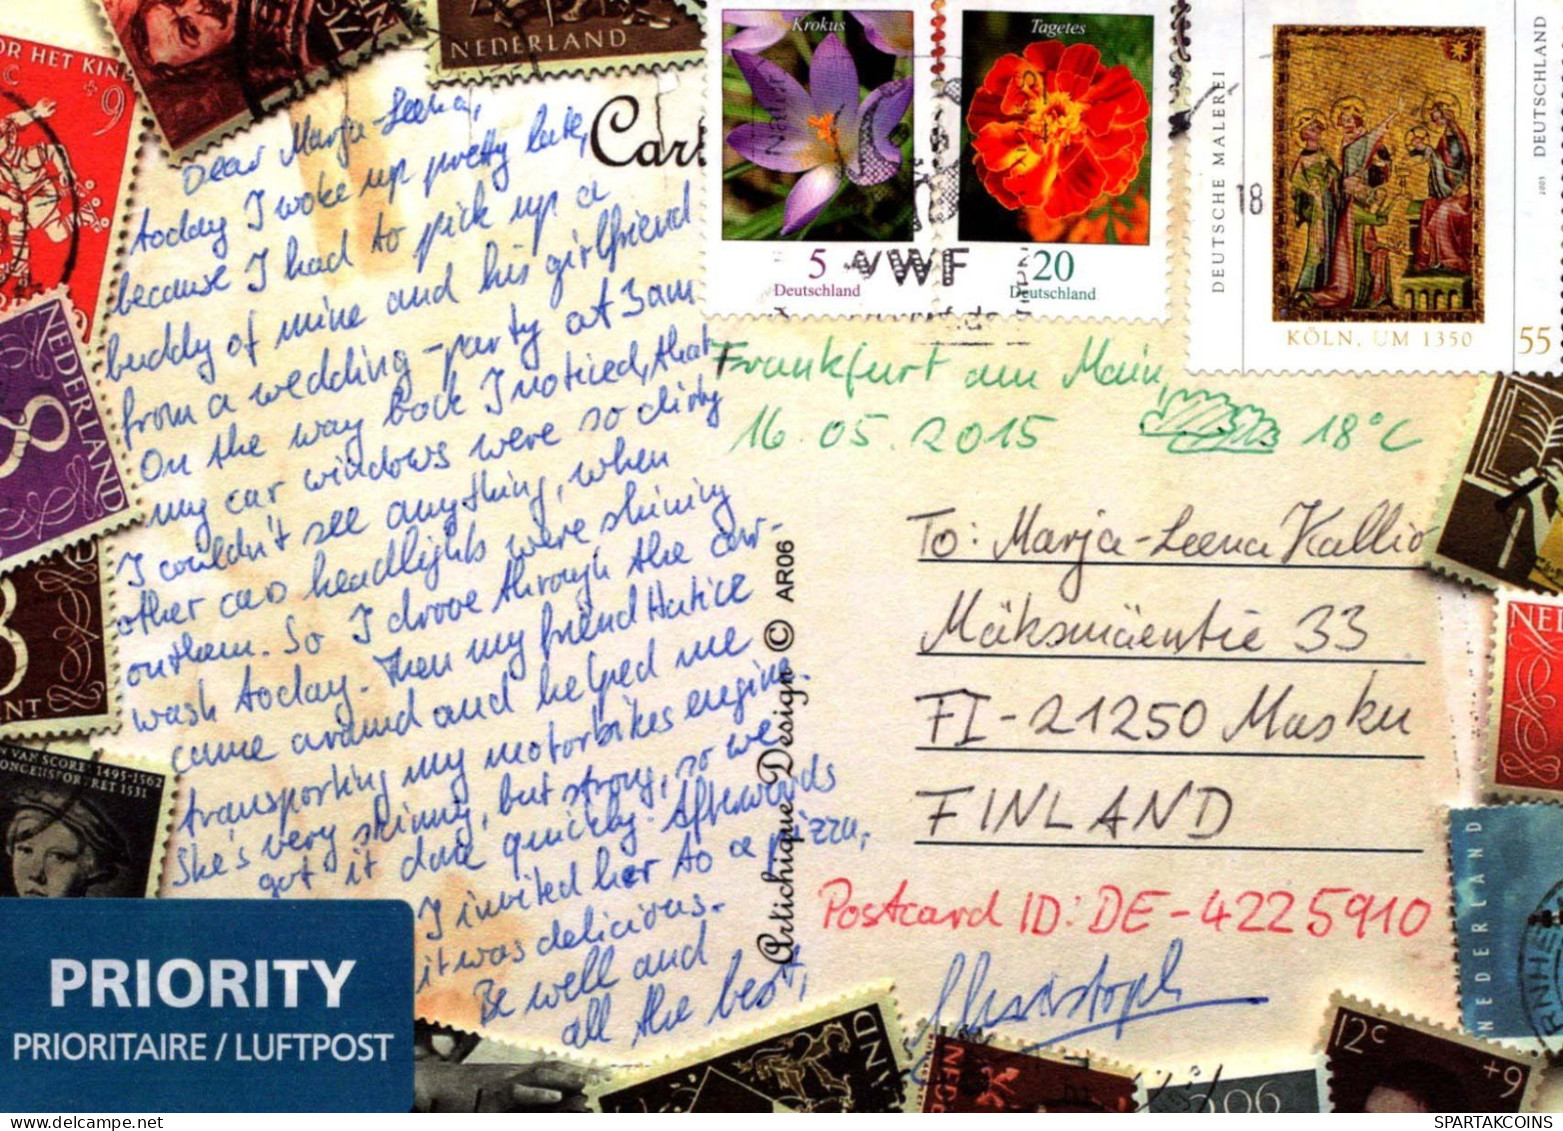 Dear Marja-Leena,
today I woke up pretty late,
because I had to pick up a
buddy of mine and his girlfriend
from a wedding-party at 3am
On the way back I noticed, that
my car windows were so dirty
I couldn't see anything, when
other cars headlights were shining
on them. So I drove through the car-
wash today. Then my friend Hatice
came around and helped me
transporting my motorbikes engine.
She's very skinny, but strong, so we
got it done quickly. Afterwards
I invited her to a pizza,
it was delicious.
Be well and
all the best,
Christoph
Cart
Artichique Design © AR06
Frankfurt am Main,
16.05.2015 18°C
To: Marja-Leena Kallio
Mäksmäentie 33
FI-21250 Masku
FINLAND
Postcard ID: DE-4225910
Krokus
5
Deutschland
Tagetes
20
Deutschland
WWF
18
DEUTSCHE MALEREI
KÖLN, UM 1350
55
DEUTSCHLAND
PRIORITY
PRIORITAIRE / LUFTPOST
NEDERLAND
OR HET KIN
c
+6
NEDERLAND
8
ENT
VAN SCOREL 1495-1562
1531
NEDERLAND
12c
+9
SPARTAKCOINS